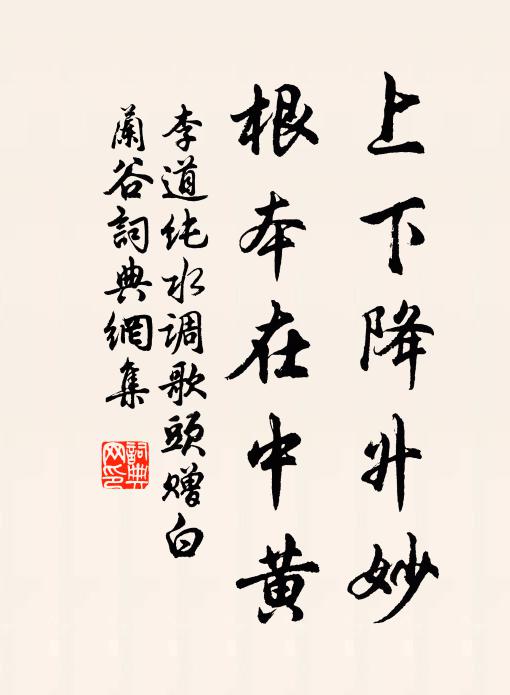 上下降升妙
根本在中黄
李道纯水调歌頭赠白
蘭谷詞典網集
詞典网印